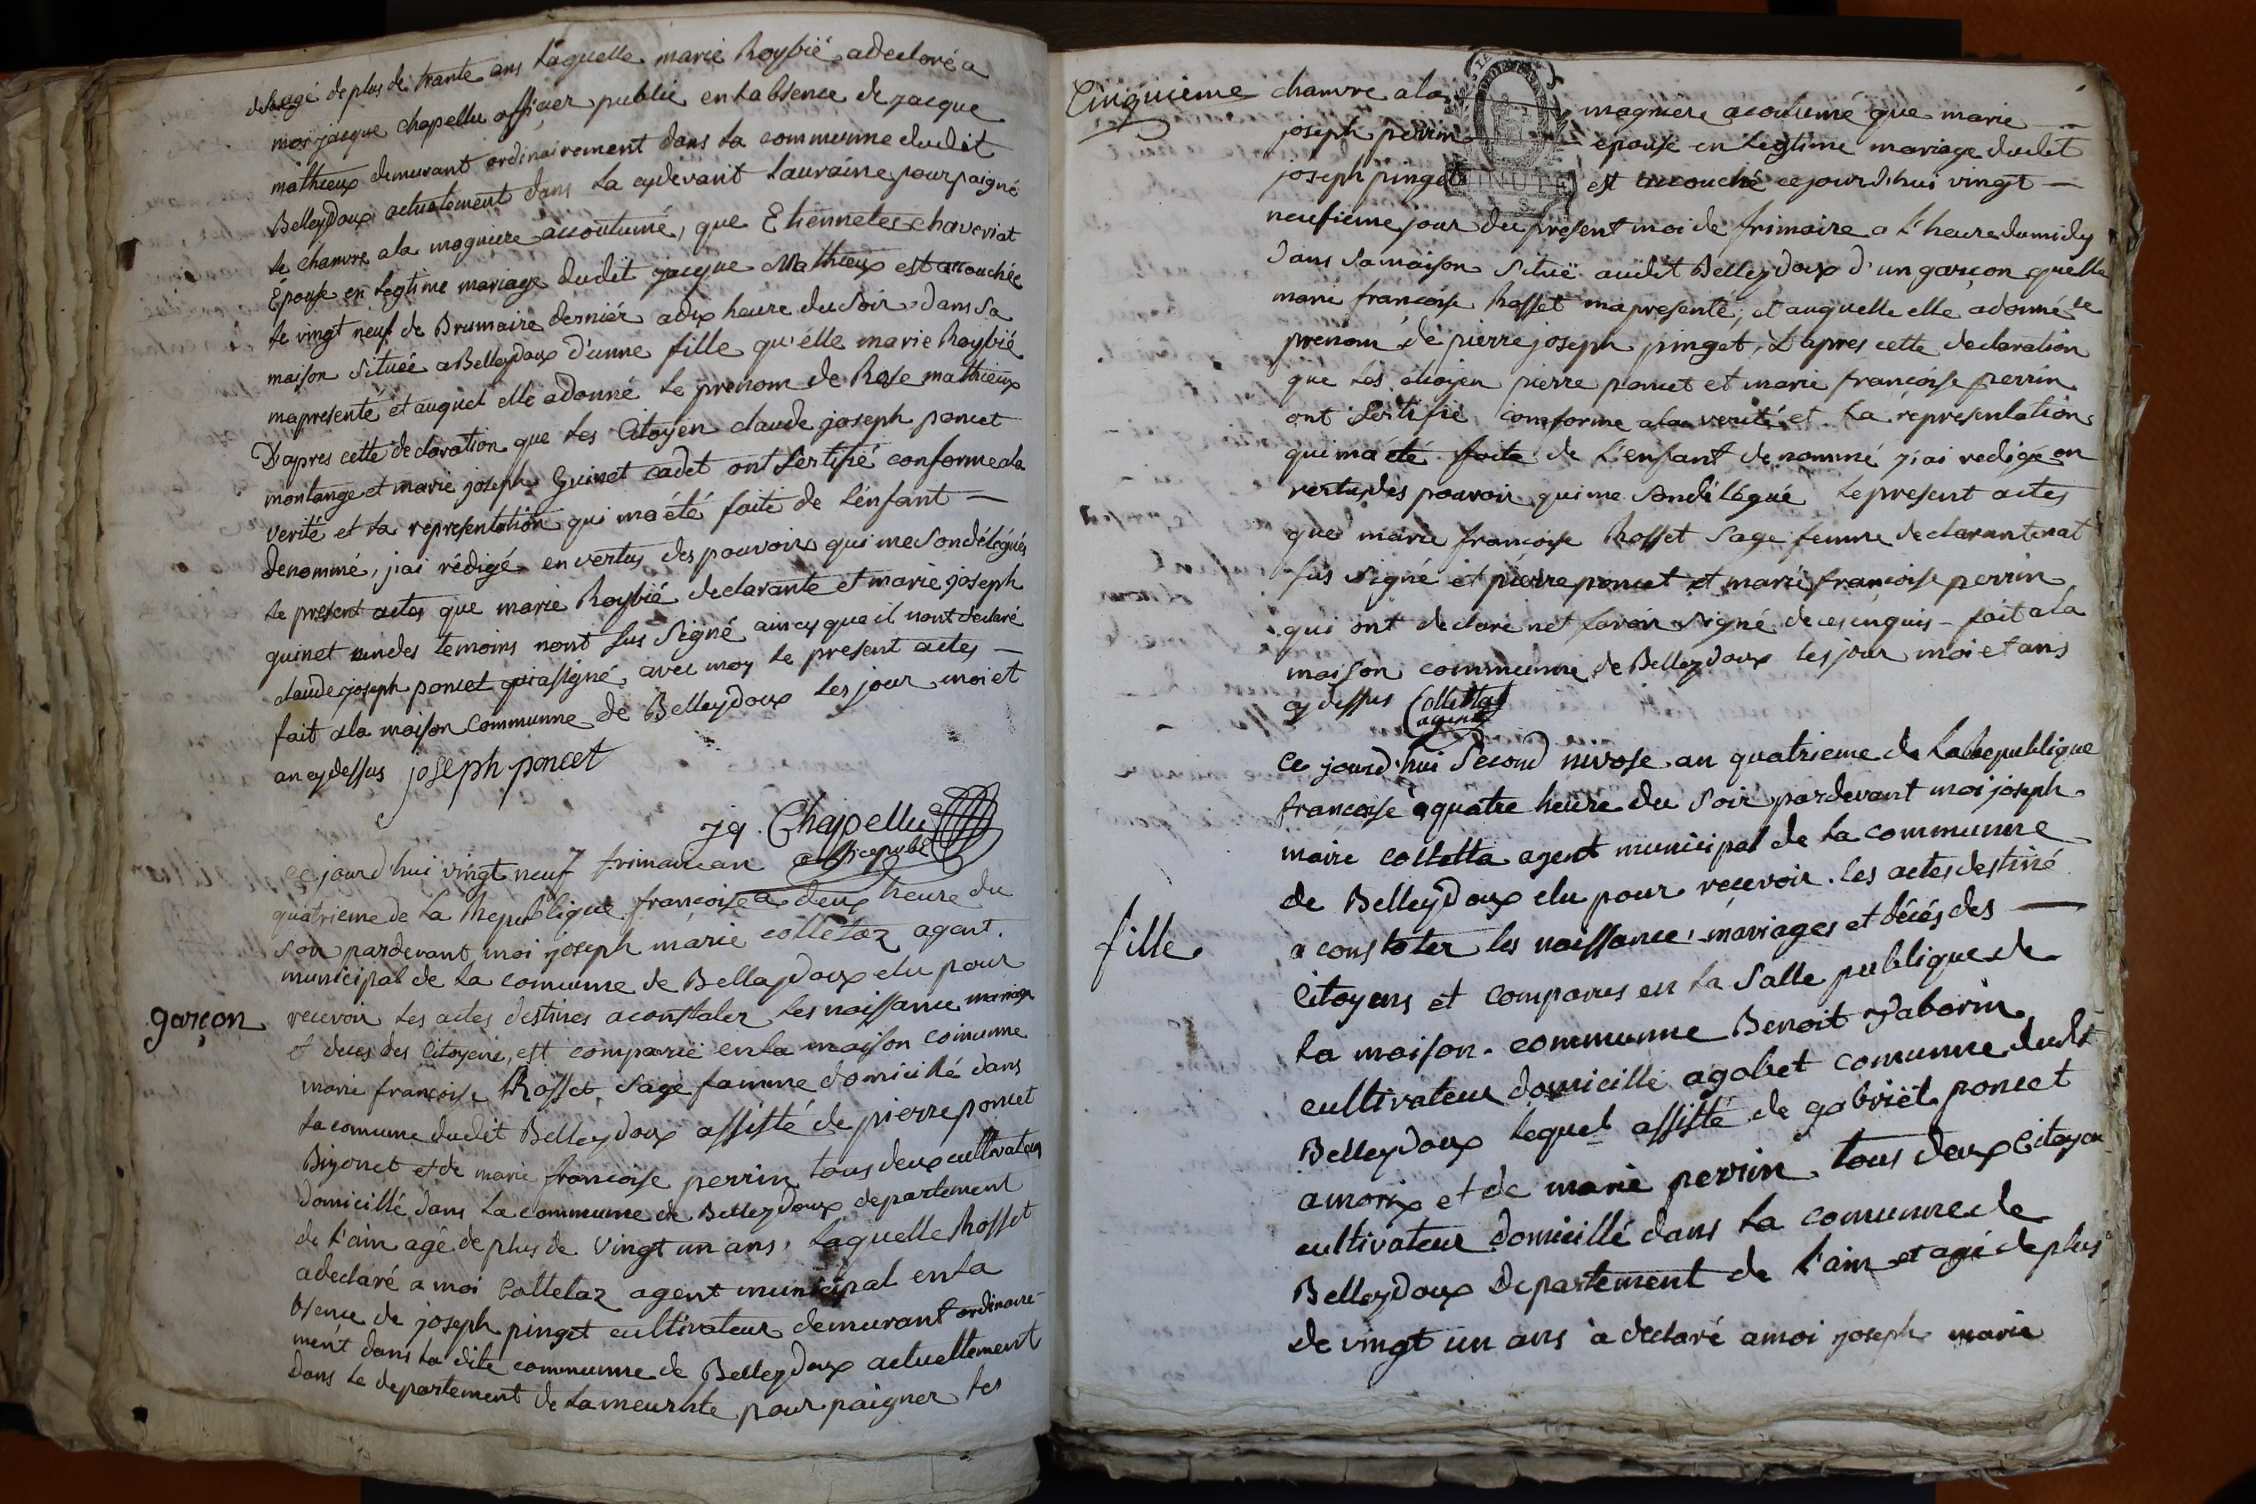 agé de plus de trante ans laquelle marie Roybié a declaré a
moi jacque chapellu officier public en labsence de jacque
mathieux demurant ordinairement dans la commune dudit
Belleydoux actuelement dans la cydevant Lauraine pour paigné
le chanvre a la magniere accoutumé, que Etiennetes chaveriat
Épouse en legtime mariage dudit jacque Mathieux est accouchée
le vingt neuf de Brumaire dernier a dix heure du Soir dans Sa
maison Située a Belleydoux d'unne fille qu'elle marie Roybié
ma presenté et auquel elle a donné le prenom de Rose mathieux
D'apres cette declaration que les Citoyen claude joseph poncet
montange et marie joseph Guinet cadet ont Sertifié conforme a la
verité et la representation qui ma été faite de lénfant —
denommé, jiai rédigé en vertus des pouvoirs qui me Son délégués
le present actes que marie Roybié declarante et marie joseph
guinet un des temoins nont Sus Signé aincy que il nont declaré
claude joseph poncet qui a signé avec moy le present actes —
fait a la maison Communne de Belleydoux les jour moi et
an cy dessus joseph poncet
jq. Chapellu
officepubl
ce jourd'hui vingt neuf frimaire an
quatrieme de la Republique françoise a deux heure du
Soir pardevant moi joseph marie colletaz agent.
municipal de la comunne de Belleydoux elu pour
recevoir les actes destines a constater les naissance mariage
garçon
et deces des Citoyens, est comparuë en la maison comunne
marie françoise Rosset, Sage famme domicillé dans
la comune dudit Belleydoux assisté de pierre poncet
Bizonet et de marie françoise perrin tous deux cultivateurs
domicillé dans la communne de Belleydoux departement
de l'ain agé de plus de vingt un ans, laquelle Rosset
a declaré a moi Collelaz agent municipal en la
bsence de joseph pinget cultivateur demurant ordinaire-
ment dans la dite communne de Belleydoux actuellement
dans le departement de la meurthe pour paigner les
Cinquieme
chanvre a la magniere acoutumé que marie —
joseph perrin epouse en legtime mariage dudit
joseph pinget est accouché ce jourd'hui vingt —
MINUTE
neufieme jour du present moi de frimaire a l'heure du midy
dans Sa maison Situë audit Belleydoux d'un garçon quelle
marie françoise Rosset ma presenté, et auquelle elle a donné le
prenom de pierre joseph pinget, D'apres cette declaration
que les citoyen pierre poncet et marie françoise perrin
ont Sertifié comforme a la verité et la representation
qui ma été faite de l'enfant denommé jiai redigé en
vertus des pouvoir qui me Son délégué le present actes
que marie françoise Rosset Sage femme declarante nat
sus signé et pierre poncet et marie françoise perrin
qui ont declaré net savoir Signé de ces enquis — fait a la
maison communne de Belleydoux les jour moi et ans
cy dessus Colletta
agent
Ce jourd'hui Second nivose an quatrieme de la Republique
francoise a quatre heure du Soir pardevant moi joseph
marie colletta agent municipal de la communne
de Belleydoux elu pour recevoir les actes destiné
fille
a constater les naissance, mariages et décés des —
Citoyens et comparus en la Salle publique de
la maison communne Benoit Daborin
cultivateur domicillé a gobet comunne dudit
Belleydoux lequel assisté de gabriël poncet
amorix et de marie perrin tous deux Citoyen
cultivateur domicillé dans la comunne de
Belleydoux Departement de l'ain et agé de plus
de vingt un ans a declaré a moi joseph marie